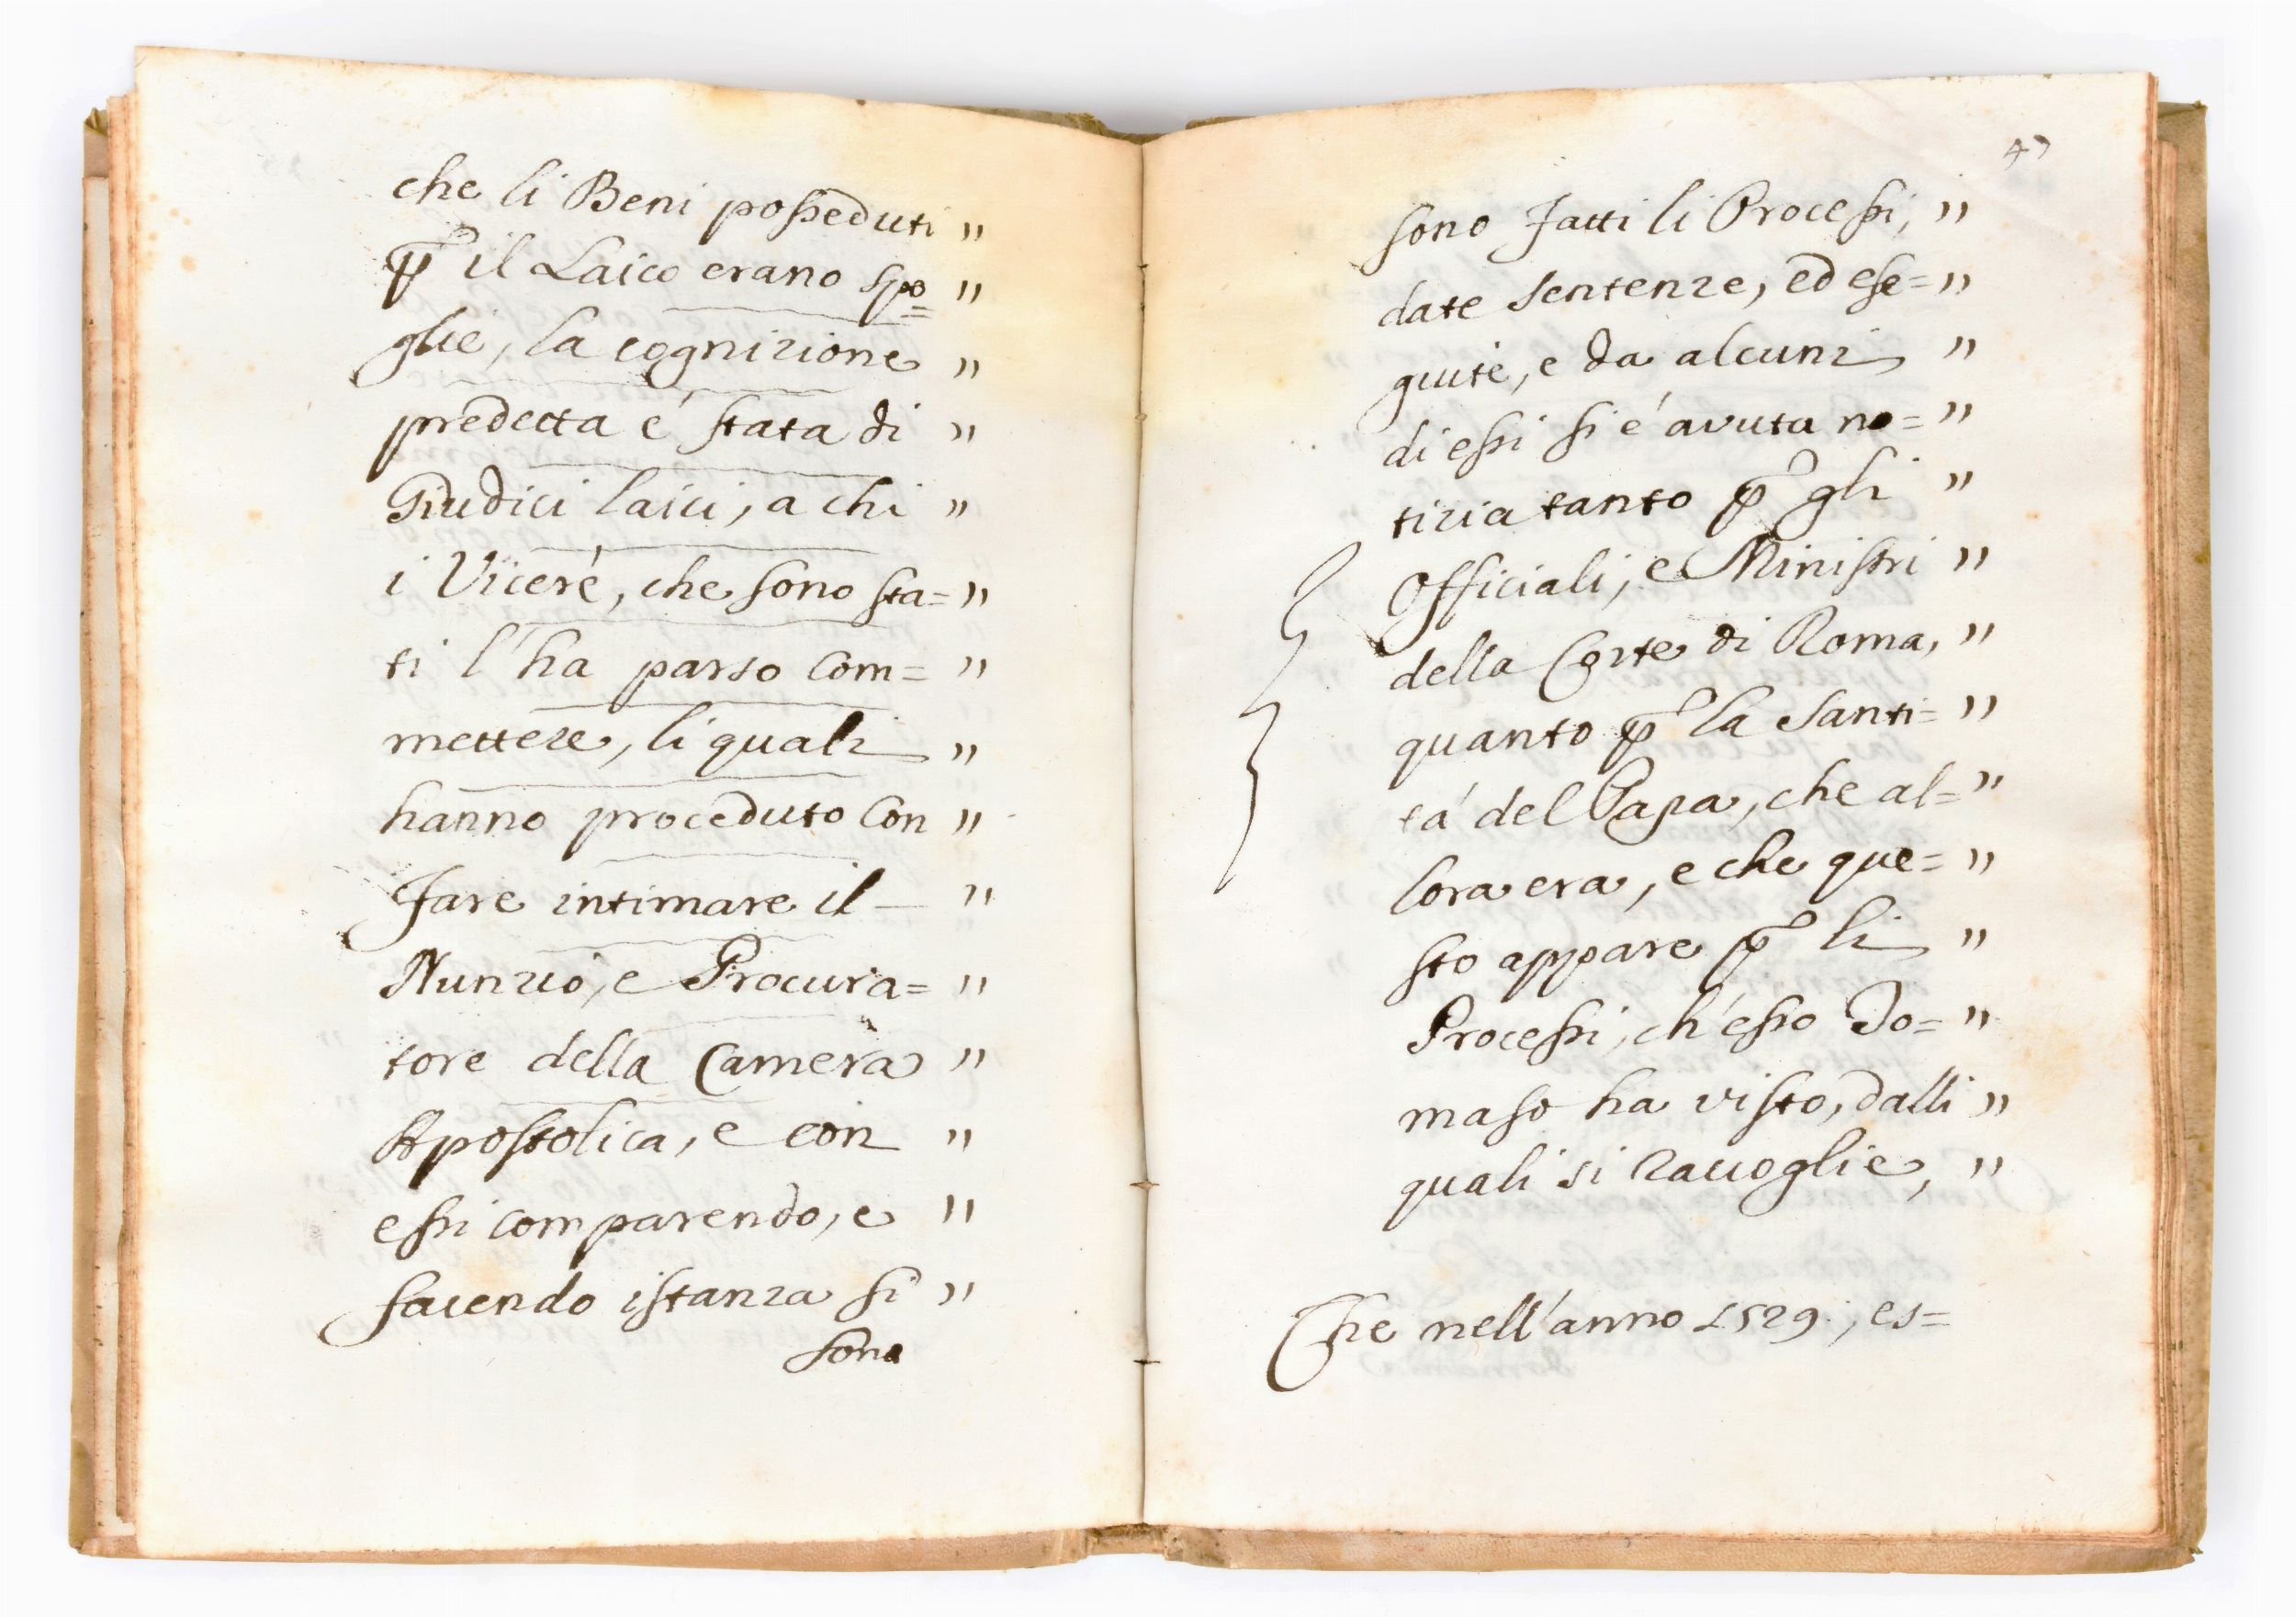 che li Beni posseduti "
p̄ il Laico erano spo= "
glie, la cognizione "
predetta é stata di "
Giudici laici, a chi "
i Viceré, che sono sta= "
ti l'ha parso com= "
mettere, li quali "
hanno proceduto con "
fare intimare il — "
Nunzio, e Procura= "
tore della Camera "
Apostolica, e con "
essi comparendo, e "
facendo istanza si "
sono
47
sono fatti li Processi, "
date sentenze, ed ese= "
guite, e da alcuni "
di essi si é avuta no= "
tizia tanto p̄ gli "
Officiali, e Ministri "
della Corte di Roma, "
quanto p̄ la Santi= "
tá del Papa, che al= "
lora era, e che que= "
sto appare p̄ li "
Processi, ch'esso To= "
maso ha visto, dalli "
quali si raccoglie, "
Che nell'anno 1529., es=